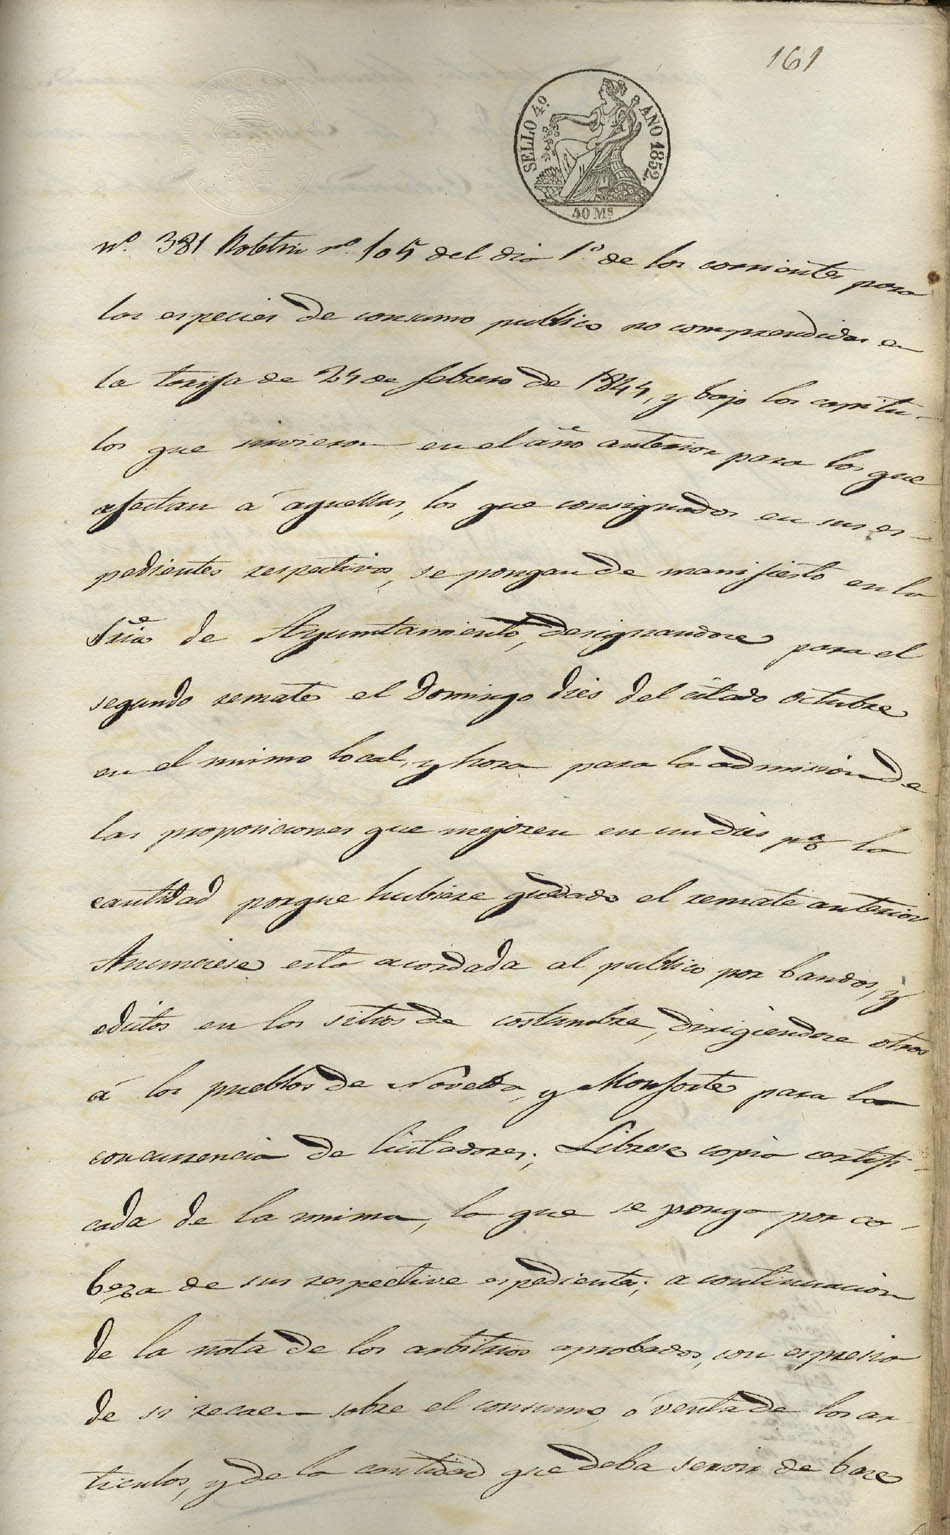 161
SELLO 4º AÑO 1852
40 Ms
nº 381 Boletin nº 105 del dia 1º de los corrientes para
las especies de consumo publico no comprendidas en
la tarifa de 24 de febrero de 1844, y bajo los capitu-
los que sirvieron en el año anterior para los que
afectan á aquellas, los que consignados en sus es-
pedientes respectivos, se pongan de manifiesto en la
Sria de Ayuntamiento, designandose para el
segundo remate el Domingo dies del citado octubre
en el mismo local, y hora para la admision de
las proposiciones que mejoren en un dies pº la
cantidad porque hubiere quedado el remate anterior
Anunciese esta acordada al publico por bandos, y
edictos en los sitios de costumbre, dirigiendose otros
á los pueblos de Novelda, y Monforte para la
concurrencia de licitadores; Librese copia certifi-
cada de la misma, la que se ponga por ca-
beza de sus respective espedientes; a continuacion
de la nota de los arbitrios aprobados, con espresion
de si recaen sobre el consumo, ó venta de los ar
ticulos, y de la cantidad que deba servir de base